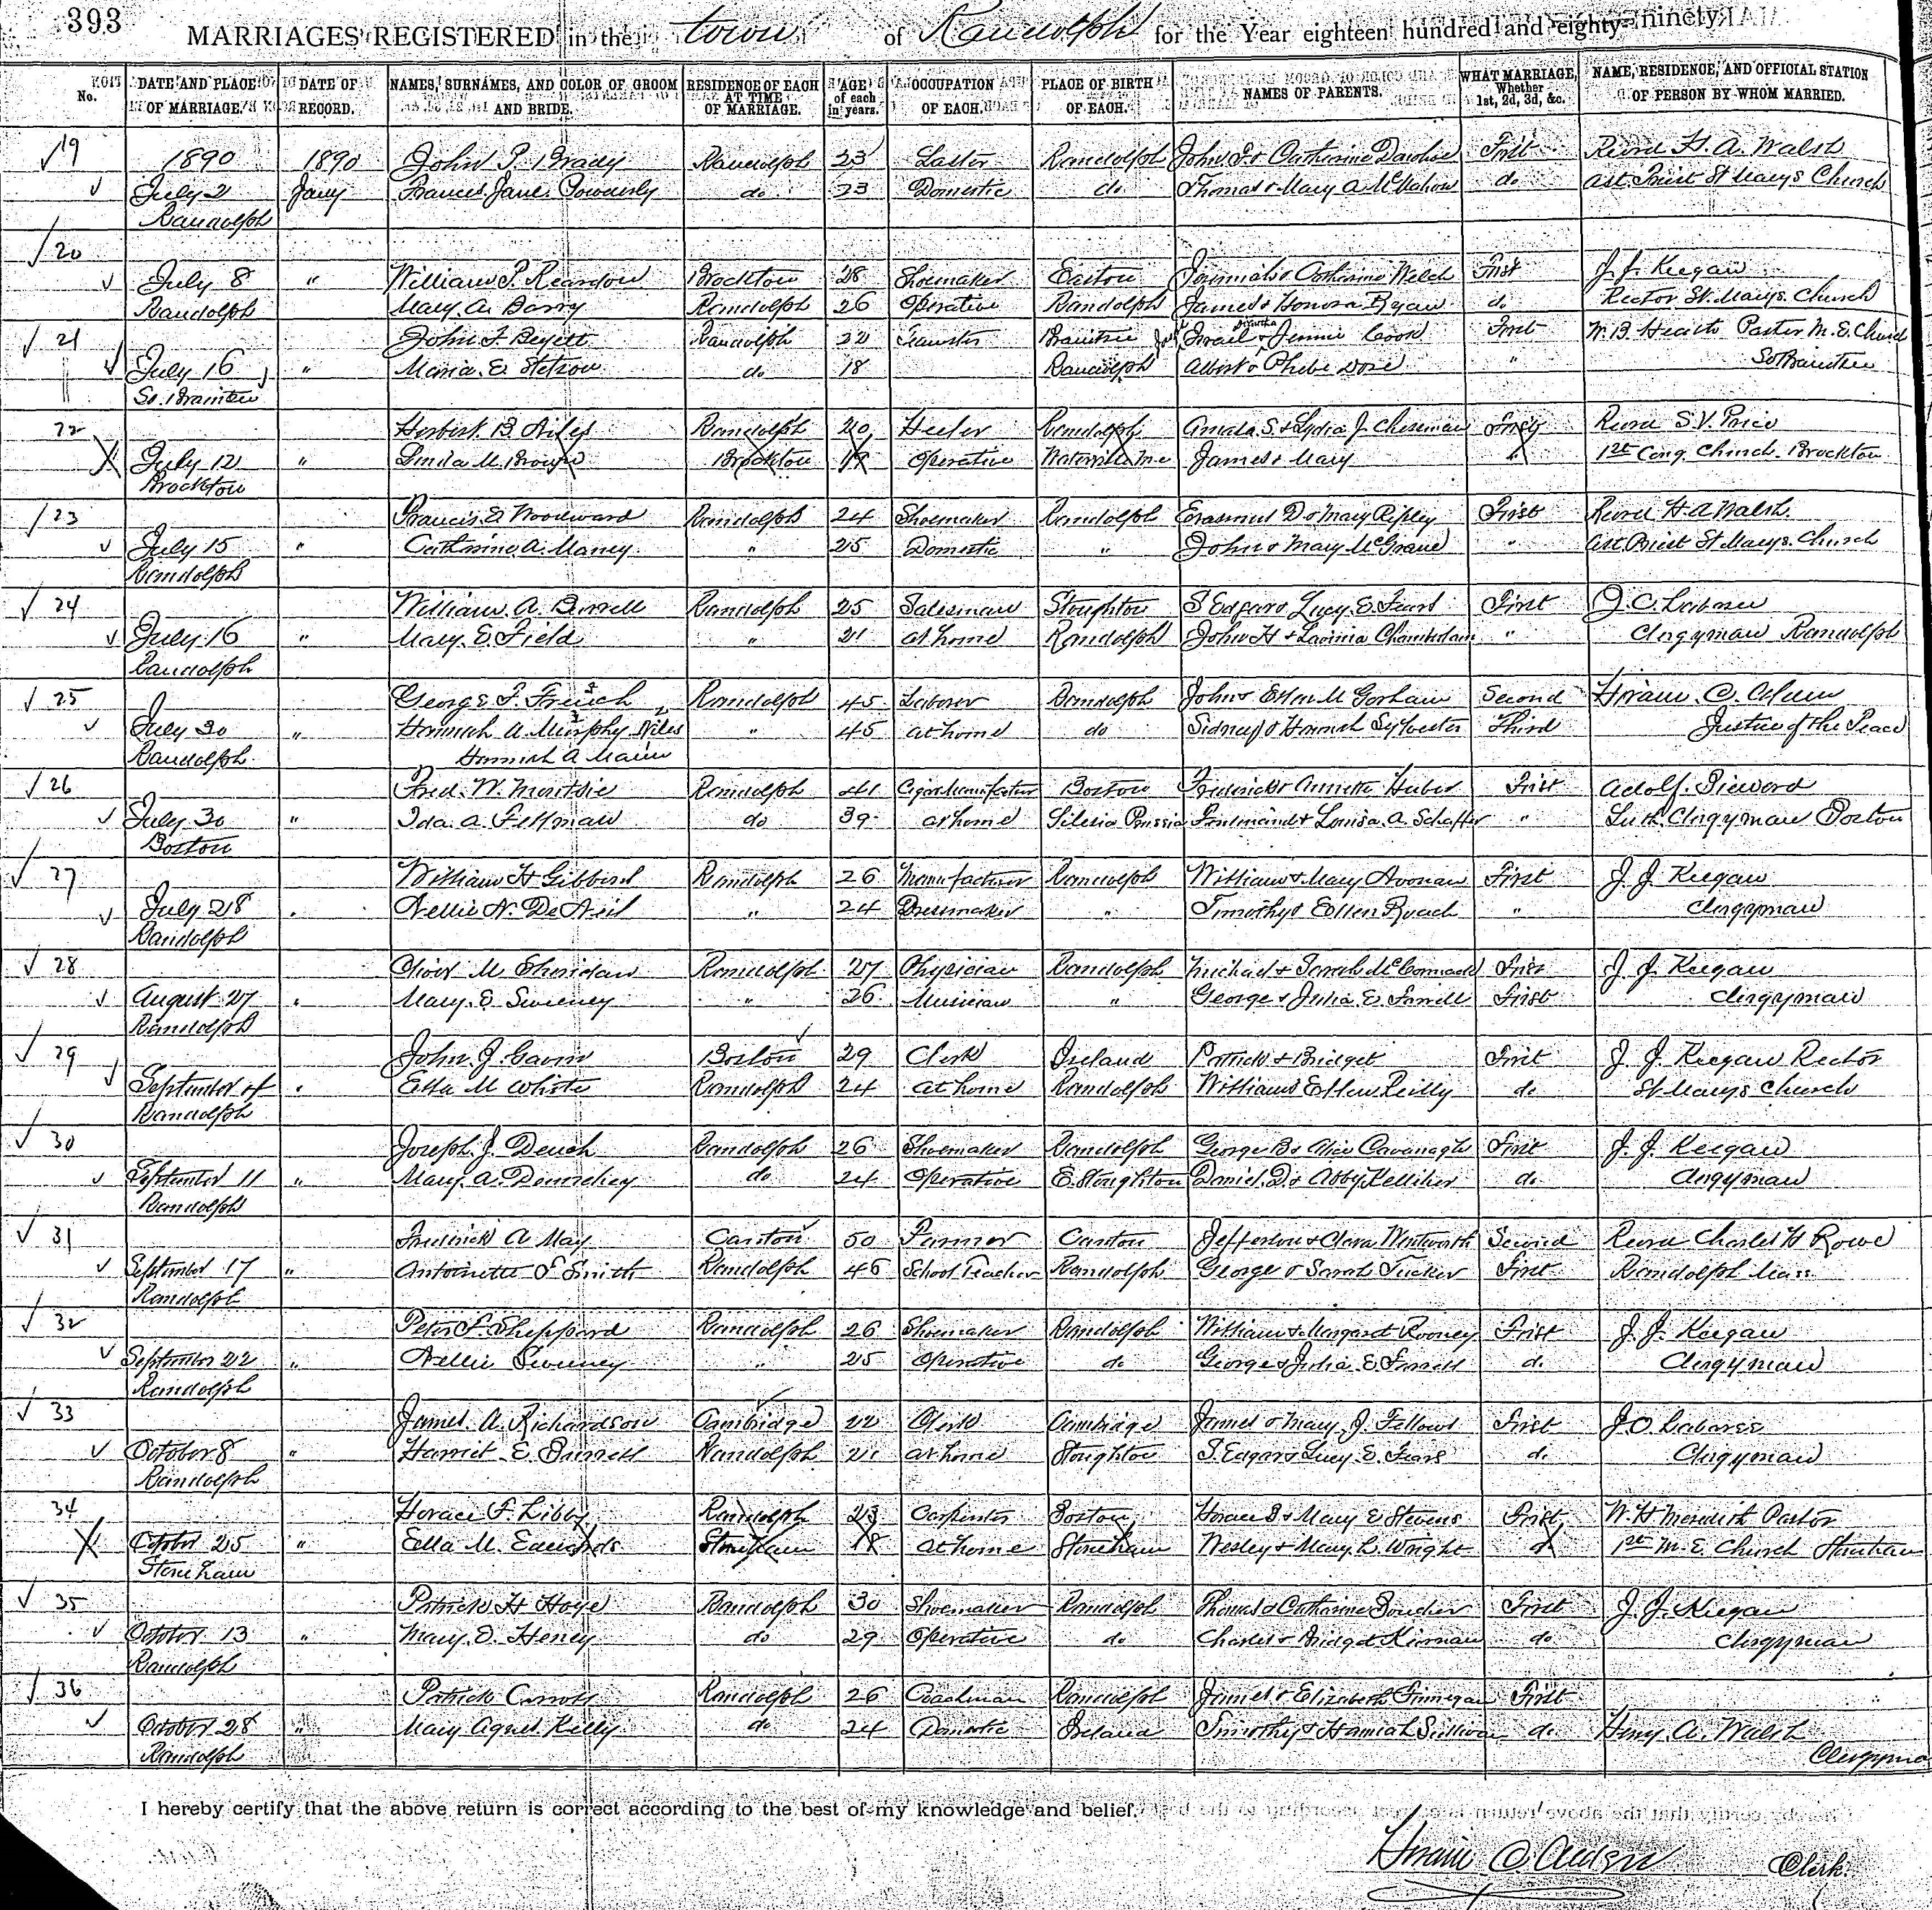 393
MARRIAGES REGISTERED in the town of Randolph for the Year eighteen hundred and eighty- ninety
No. DATE AND PLACE OF MARRIAGE. DATE OF RECORD. NAMES, SURNAMES, AND COLOR OF GROOM AND BRIDE. RESIDENCE OF EACH AT TIME OF MARRIAGE. AGE of each in years. OCCUPATION OF EACH. PLACE OF BIRTH OF EACH. NAMES OF PARENTS. WHAT MARRIAGE, Whether 1st, 2d, 3d, &c. NAME, RESIDENCE, AND OFFICIAL STATION OF PERSON BY WHOM MARRIED.
19 1890 1890 John P. Brady Randolph 23 Laster Randolph John & Catharine First Revd H. A. Walsh
July 2 Jany Frances Jane Powderly do 23 Domestic do Thomas & Mary A. McMahon do ast Priest St Marys Church
Randolph
20
July 8 " William P. Reardon Brockton 28 Shoemaker Easton Jeremiah & Catharine Welch First J. J. Keegan
Randolph Mary A. Barry Randolph 26 Operative Randolph James & Honora Ryan do Rector St. Marys Church
21 John F. Randolph 22 Teamster Braintree Israel & Jennie Cook First W. B. Heath Pastor M. E. Church
July 16 " Maria E. Stetson do 18 Randolph Albert & Phebe " So Braintree
So. Braintree
22 Herbert B. Niles Randolph 20 Heeler Randolph Amasa S. & Lydia J. Chessman First Revd S. V. Price
July 12 " Linda M. Brown Brockton 19 Operative Waterville Me James & Mary " 1st Cong. Church. Brockton
Brockton
23 Francis E. Woodward Randolph 24 Shoemaker Randolph Erasmus D & Mary Ripley First Revd H. A Walsh
July 15 " Catharine A. Maney " 25 Domestic " John & Mary McGrane " ast. Priest St Marys Church
Randolph
24 William A. Burrell Randolph 25 Salesman Stoughton S Edgar & Lucy E. First J. C. Labaree
July 16 " Mary E. Field " 21 at home Randolph John H & Lavinia Chamberlain " Clergyman Randolph
Randolph
25 George F. French Randolph 45 Laborer Randolph John & Esther M Gorham Second Hiram C. Alden
July 30 " Hannah A. Murphy Niles " 45 at home do Sidney & Hannah Sylvester Third Justice of the Peace
Randolph Hannah A Mann
26 Fred. W. Randolph 41 Cigar Manufacturer Boston Frederick & Annette Huber First Adolf.
July 30 " Ida. A. Fellman do 39 at home Silesia Prussia Ferdinand & Louisa. A. Schaffer " Luth. Clergyman Boston
Boston
27 William H Gibbons Randolph 26 Manufacturer Randolph William & Mary Noonan First J. J. Keegan
July 28 " Nellie N. DeNeil " 24 Dressmaker " Timothy & Ellen Roach " Clergyman
Randolph
28 Oliver M Sheridan Randolph 27 Physician Randolph Michael & Sarah McCormack First J. J. Keegan
August 27 " Mary. E Sweeney " 26 Musician " George & Julia E. Farrell First Clergyman
Randolph
29 John. J. Gavin Boston 29 Clerk Ireland Patrick & Bridget First J. J. Keegan Rector
September 4 " Ella M White Randolph 24 at home Randolph William & Ellen Reilly do St Marys Church
Randolph
30 Joseph. J. Randolph 26 Shoemaker Randolph George B & Alice Cavanagh First J. J. Keegan
September 11 " Mary. A. do 24 Operative E. Stoughton Daniel. D. & Abby Kelliher do Clergyman
Randolph
31 Frederick A May Canton 50 Farmer Canton Jefferson & Clara Wentworth Second Revd Charles H Rowe
September 17 " Antoinette F Smith Randolph 46 School Teacher Randolph George & Sarah Tucker First Randolph Mass
Randolph
32 Peter F. Sheppard Randolph 26 Shoemaker Randolph William & Margaret Rooney First J. J. Keegan
September 22 " Nellie Sweeney " 25 Operative do George & Julia E. Farrell do Clergyman
Randolph
33 James. A. Richardson Cambridge 22 Clerk Cambridge James & Mary. J. Fellows First J. C. Labaree
October 8 " Harriet E Burrell Randolph 21 at home Stoughton S. Edgar & Lucy. E. do Clergyman
Randolph
34 Horace F. Libby Randolph 23 Carpenter Boston Horace & Mary E Stevens First W. H Meredith Pastor
October 25 " Ella M. Edwards Stoneham 18 at home Stoneham Wesley & Mary L. Wright do 1st M. E. Church Stoneham
Stoneham
35 Patrick H Hoye Randolph 30 Shoemaker Randolph Thomas & Catharine Boucher First J. J. Keegan
October 13 " Mary. O. Heney do 29 Operative do Charles & Bridget Kiernan do Clergyman
Randolph
36 Patrick Carroll Randolph 26 Coachman Randolph James & Elizabeth Finnegan First
October 28 " Mary Agnes Kelly do 24 Domestic Ireland Timothy & Hannah Sullivan do Henry. A. Walsh
Randolph Clergyman
I hereby certify that the above return is correct according to the best of my knowledge and belief.
Hiram C. Alden Clerk.